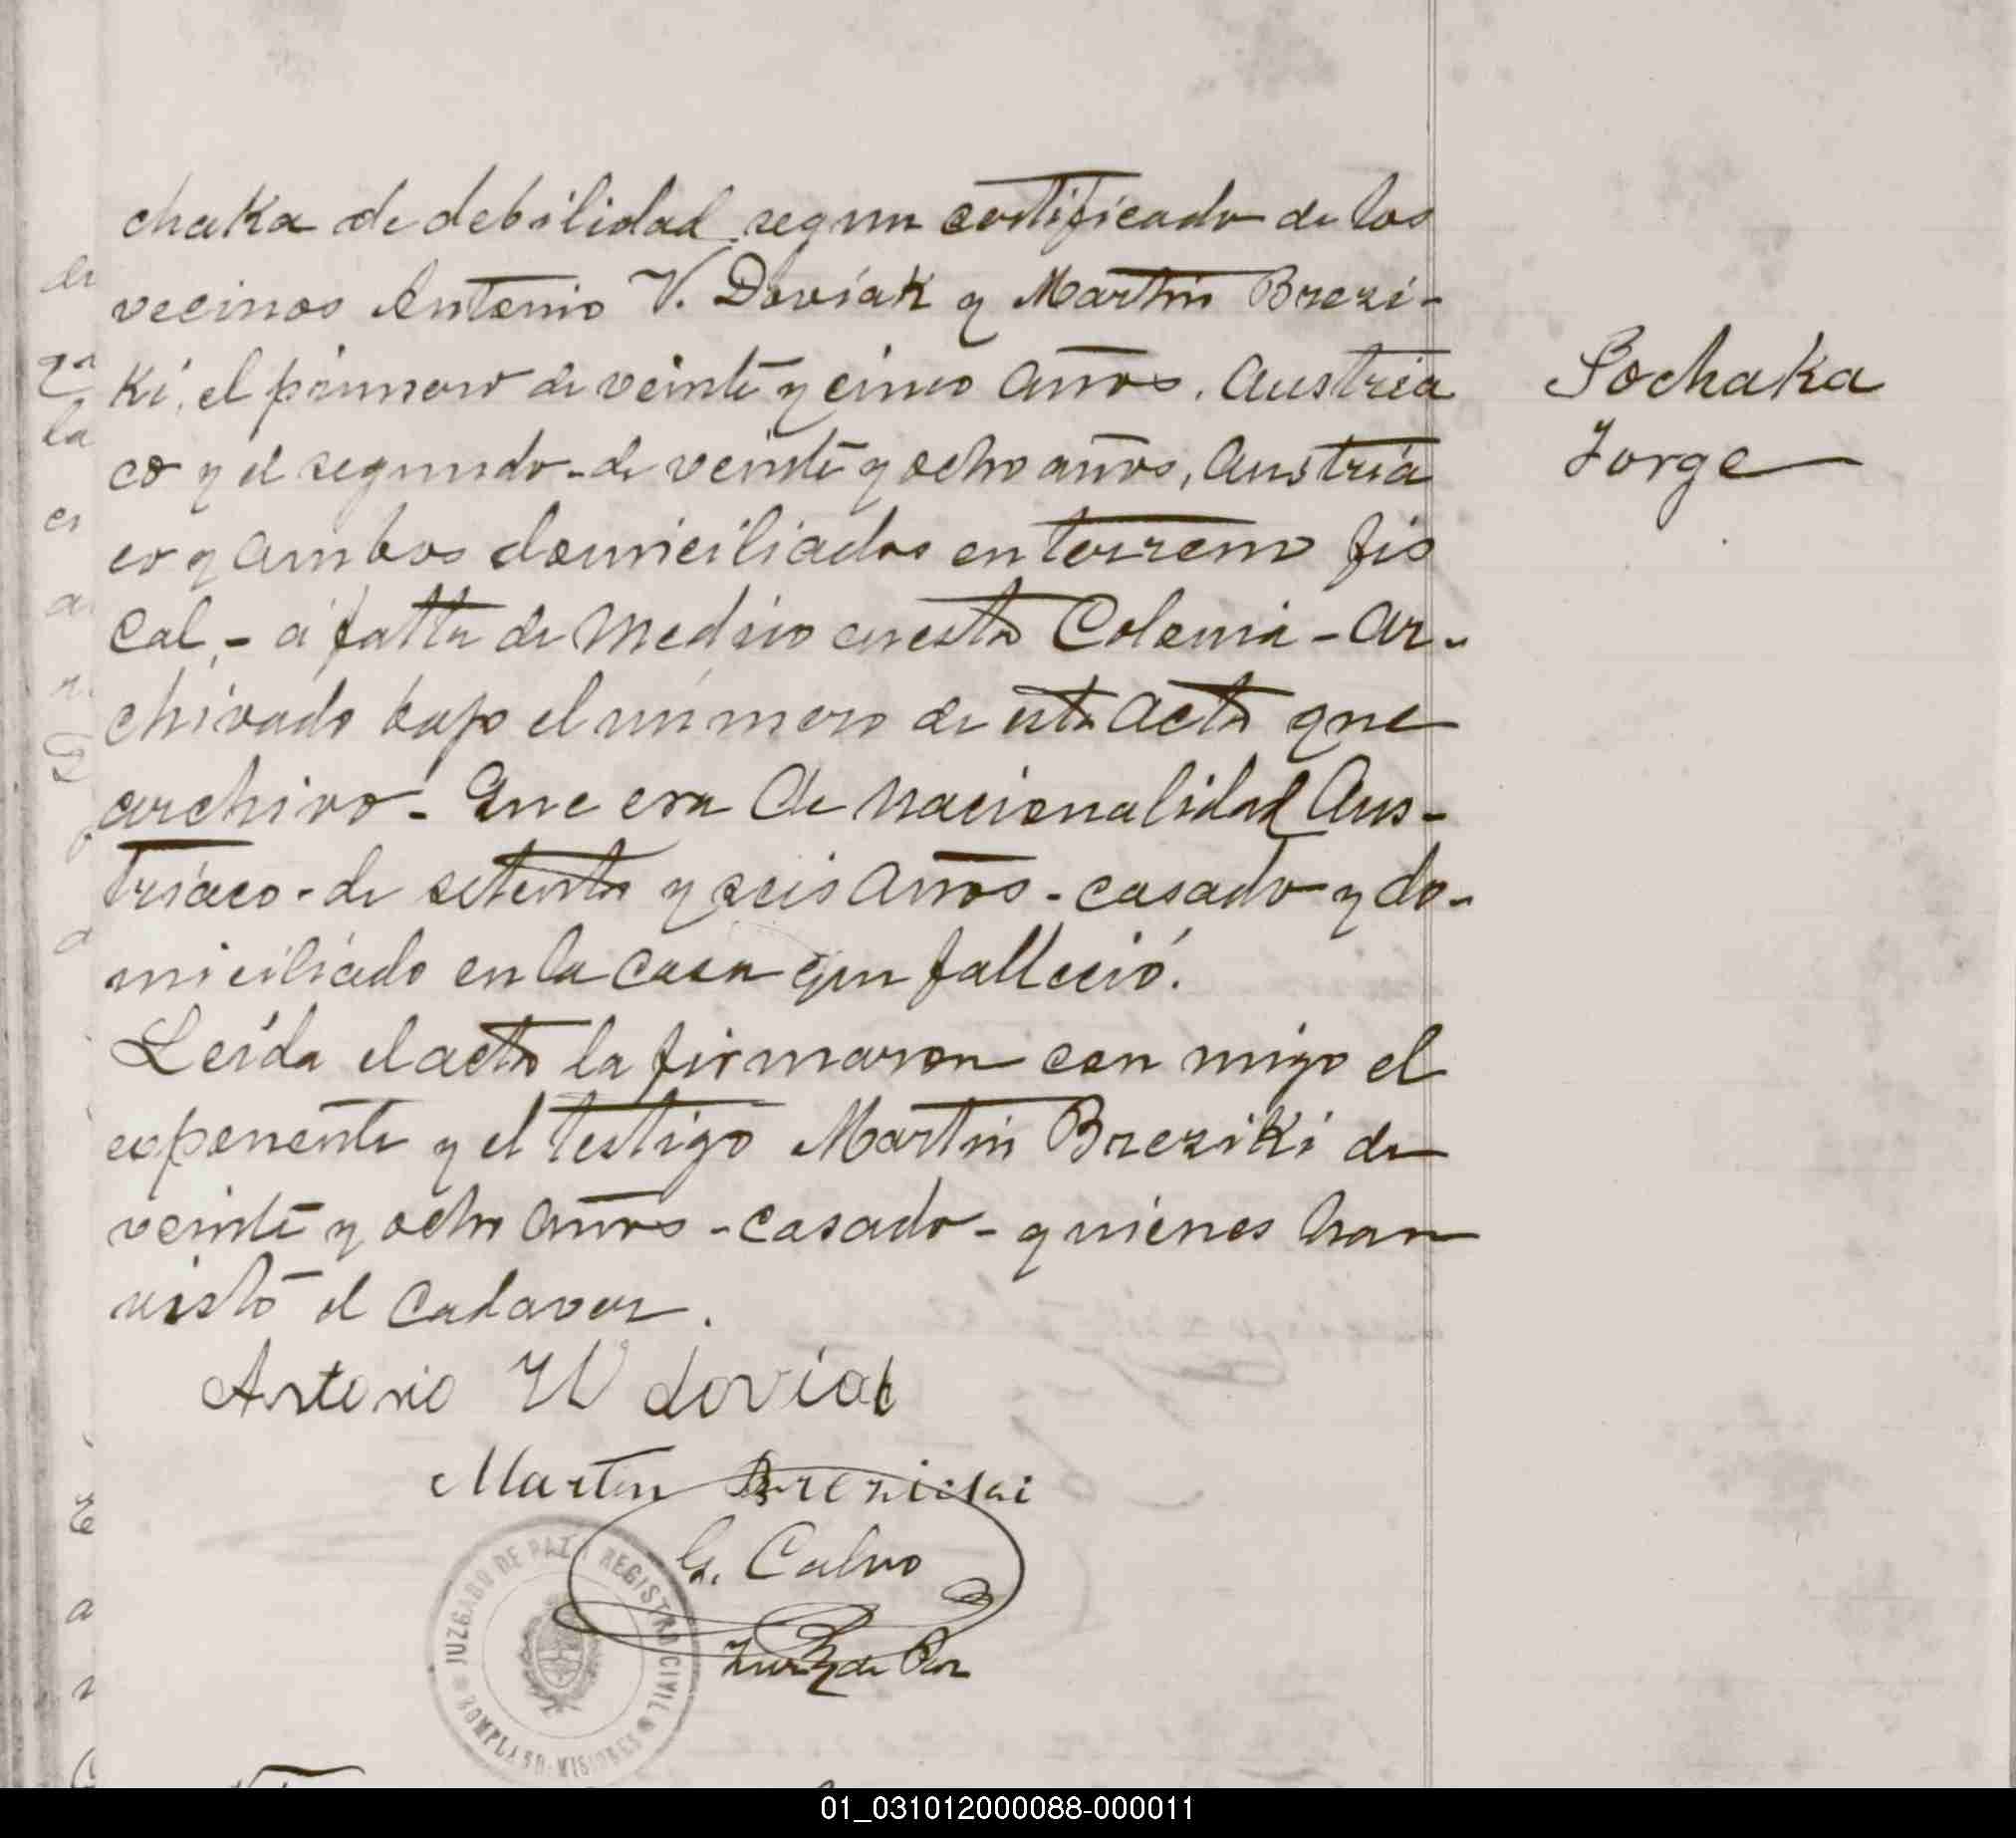 chaka de debilidad segun certificado de los
vecinos Antonio V. Doviak y Martin Brezi-
ki, el primero de veinte y cinco años, Austria
co y el segundo - de veinte y ocho años, Austria
co y ambos domiciliados en terreno fis
cal, - á falta de médico en esta Colonia - ar-
chivado bajo el número de esta acta que
archivo - Que era de nacionalidad Aus-
tríaco - de setenta y seis años - casado y do-
miciliado en la casa que falleció.
Leída el acta la firmaron con migo el
esponente y el testigo Martin Breziki de
veinte y ocho años - casado - quienes han
visto el cadaver.
Antonio W doviak
Martin Brezicki
G. Calvo
Juez de Paz
JUZGADO DE PAZ Y REGISTRO CIVIL
BOMPLAND - MISIONES
Sochaka
Jorge
de
la
es
a
a
01_031012000088-000011